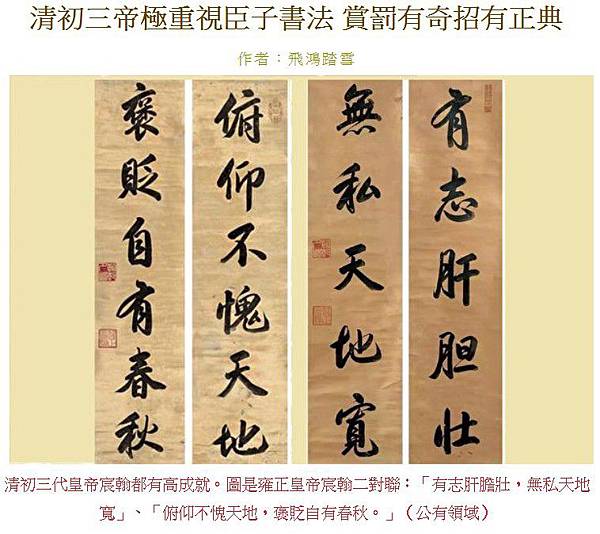 清初三帝極重視臣子書法 賞罰有奇招有正典
作者：飛鴻踏雪
有志肝胆壮
無私天地寬
俯仰不愧天地
褒貶自有春秋
清初三代皇帝宸翰都有高成就。圖是雍正皇帝宸翰二對聯：「有志肝膽壯，無私天地
寬」、「俯仰不愧天地，褒貶自有春秋。」（公有領域）